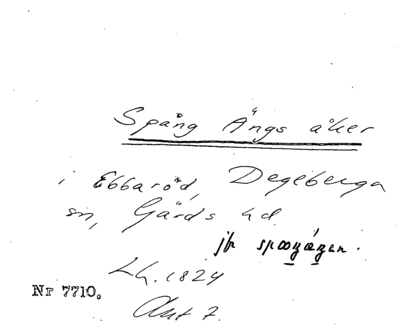 Spång Ängs åker
i Ebbaröd, Degeberga
sn, Gärds hd.
jfr
Lh. 1824
Nr 7710.
Akt 7.